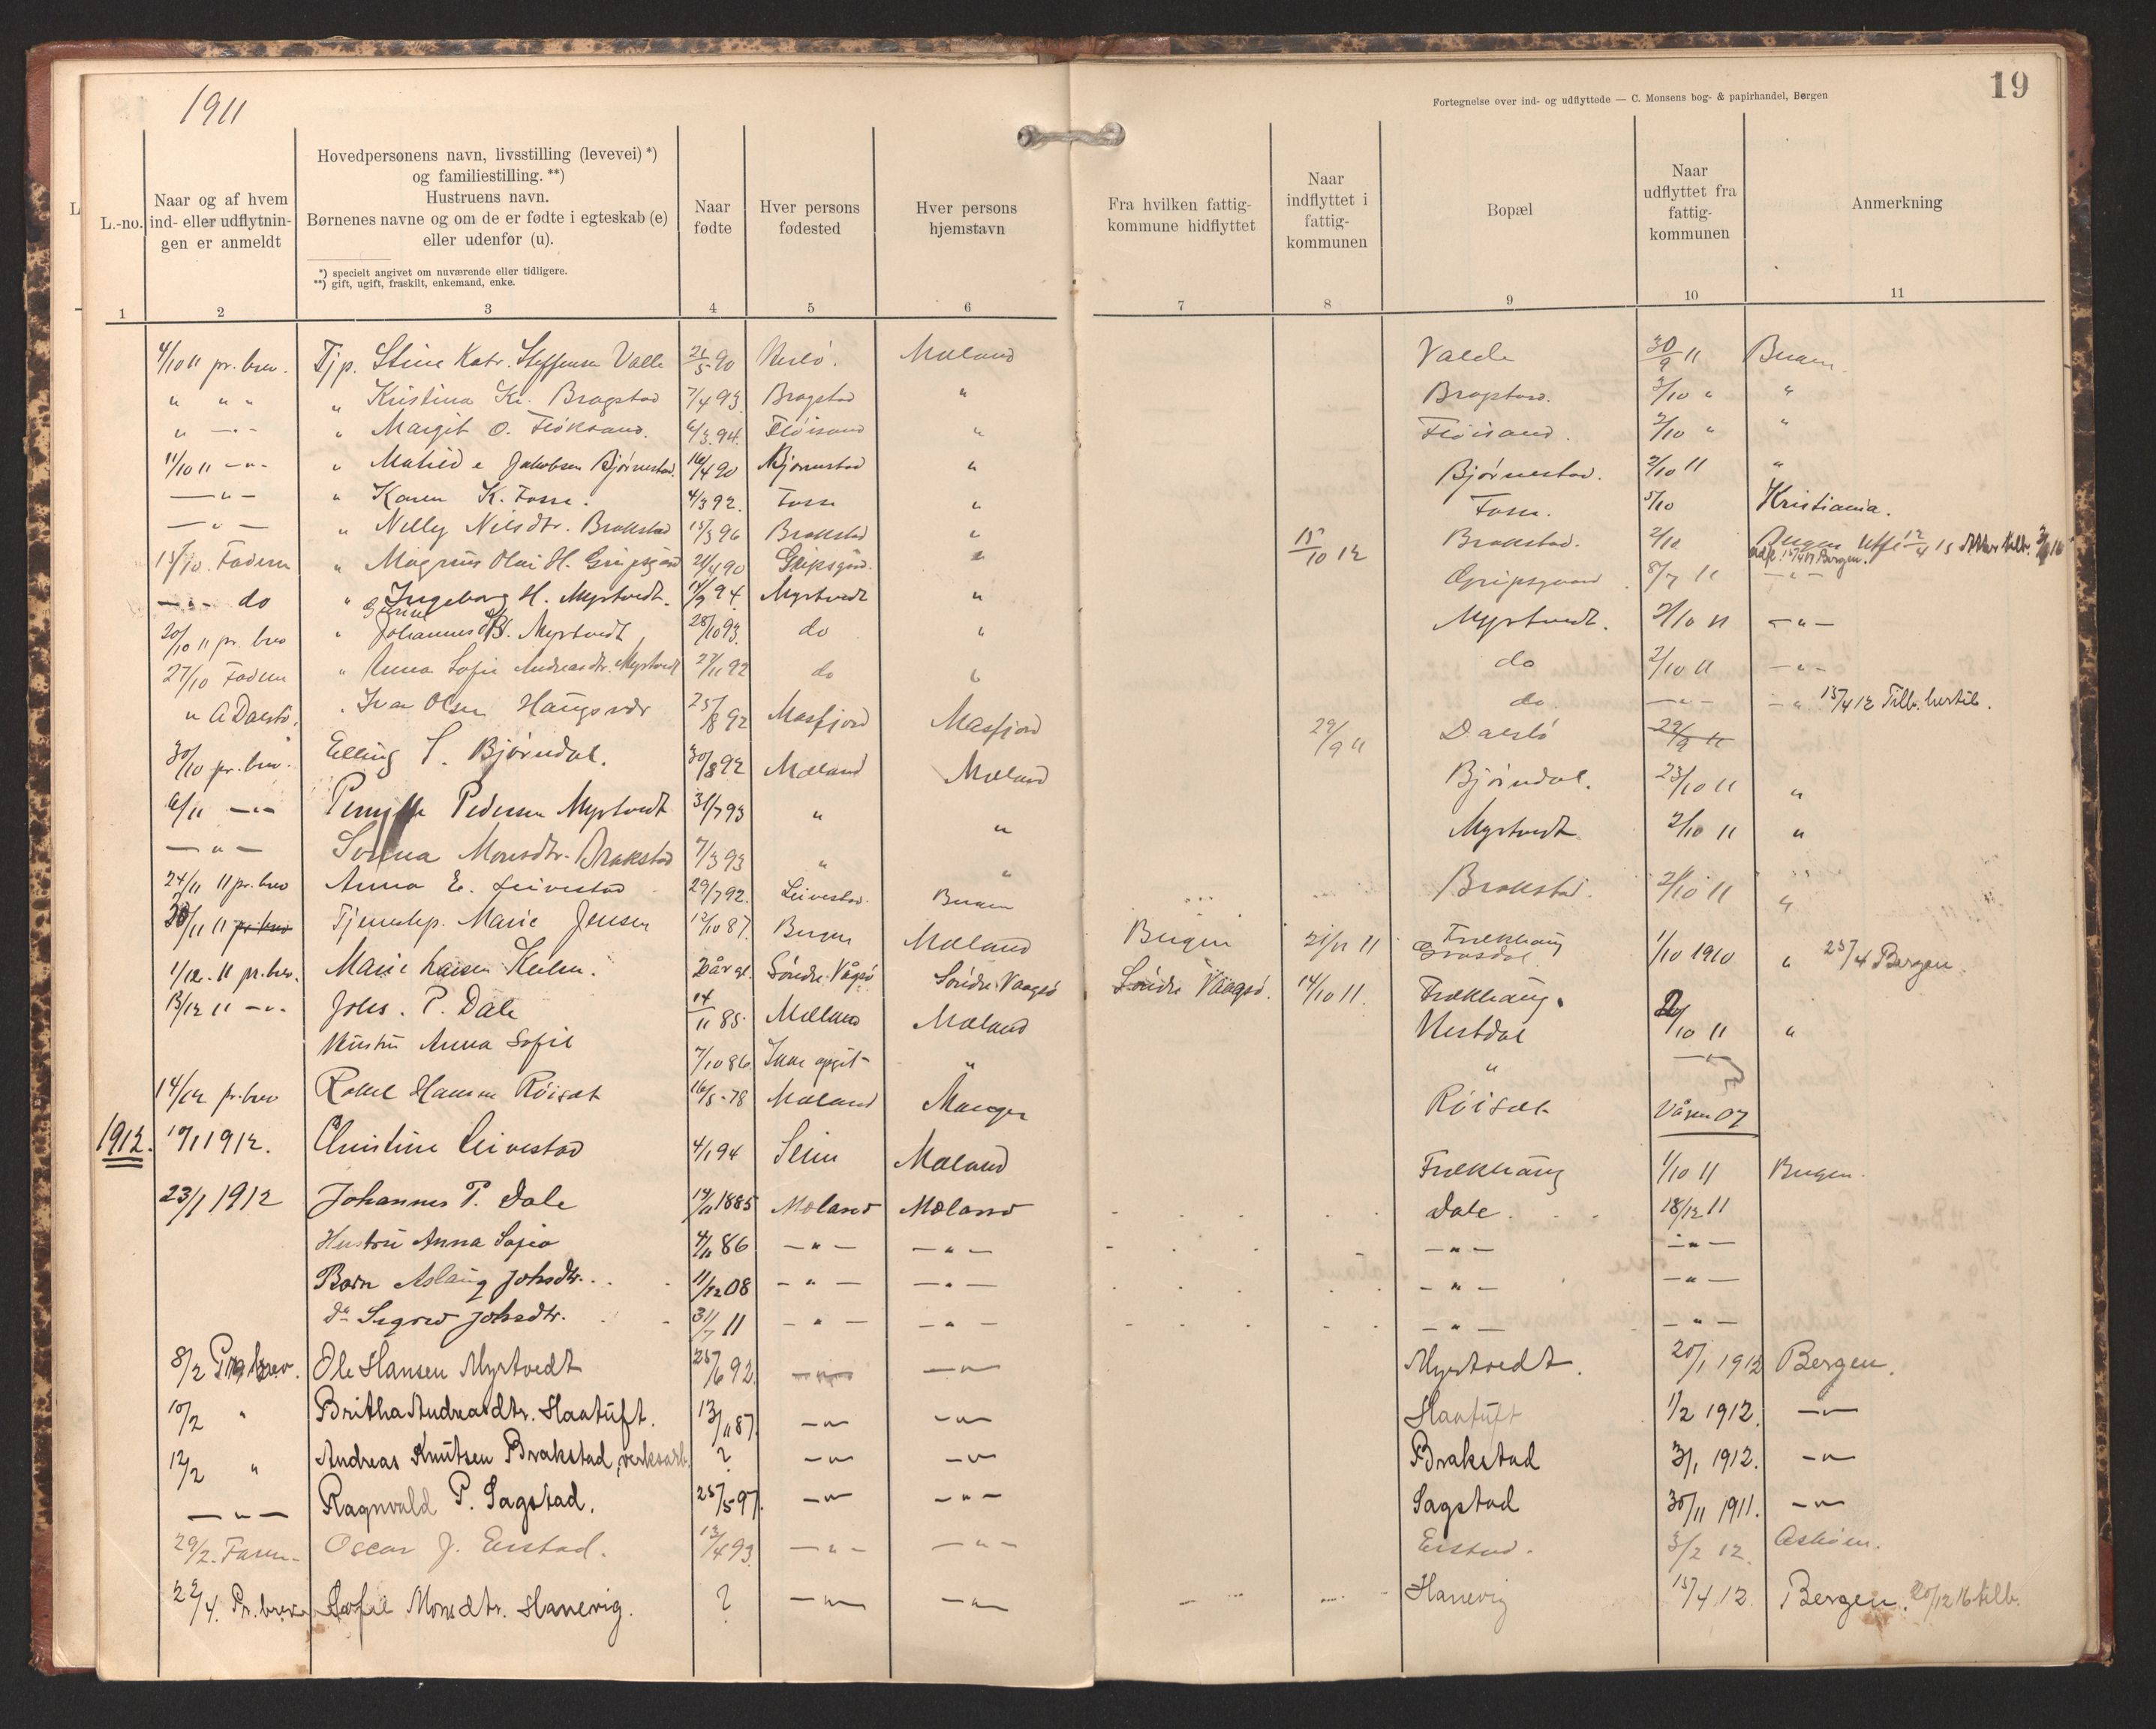 1911
Fortegnelse over ind- og udflyttede — C. Monsens bog- & papirhandel, Bergen
19
L.-no.
Naar og af hvem ind- eller udflytnin-gen er anmeldt
Hovedpersonens navn, livsstilling (levevei) *)
og familiestilling. **)
Hustruens navn.
Børnenes navne og om de er fødte i egteskab (e)
eller udenfor (u).
*) specielt angivet om nuværende eller tidligere.
**) gift, ugift, fraskilt, enkemand, enke.
Naar fødte
Hver persons fødested
Hver persons hjemstavn
Fra hvilken fattig-kommune hidflyttet
Naar indflyttet i fattig-kommunen
Bopæl
Naar udflyttet fra fattig-kommunen
Anmerkning
1 2 3 4 5 6 7 8 9 10 11
4/10 11 pr. brev. Tjp. Stine Katr. Steffensen Valle 21/5 90 Herlö. Mæland Valde 30/9 11 Bergen
" " " " Kristina Kr. Bragstad 7/4 93 Bragstad " Bragstad. 3/10 " "
" — " - " Margit O. Fløksand. 6/3 94. Fløisand " Fløisand. 2/10 " "
11/10 11 — " - " Mathilde Jakobsen Bjørnestad. 16/4 90 Bjørnestad " Bjørnestad. 2/10 11 "
— " - " Karen K. Fosse. 4/3 92. Fosse " Fosse. 5/10 Kristiania.
— " — " Nelly Nilsdtr. Brakstad 15/3 96 Brakstad " 15/10 12 Brakstad. 2/10 Bergen
15/10. Faderen " Magnus Olai H. Gripsgård 21/4 90 Gripsgård. " Gripsgaard 8/7 11 — " —
— " - do " Ingeborg H. Myrtvedt. 14/9 94. Myrtvedt " Myrtvedt. 2/10 11 — " —
20/10 11 pr. brev " Johannes Myrtvedt 28/10 93. do " do 2/10 11 — " -
27/10 Faderen " Anna Sofie Andreasdtr. Myrtvedt 27/11 92 do " do — " - — " 15/4 12 Tilb. hertil.
" A Dalstö. " Ivar Olsen Haugsvær 25/8 92 Masfjord Masfjord 29/9 11 Dalslö 29/9 11
30/10 pr. brev. Elling S. Bjørndal. 30/8 92 Mæland Mæland Bjørndal. 23/10 11 "
6/11 — " — Pernille Pedersen Myrtvedt 31/7 93 " " Myrtvedt 2/10 11 "
— " — Monsdtr. Brakstad 7/3 93 " " Brakstad. 2/10 11 "
24/11 11 pr. brev Anna E. Leivestad 29/7 92. Leivestad. Bergen
30/11 11 pr. brev Tjenestep. Marie Jensen 12/10 87. Bergen Mæland Bergen 21/11 11 Frekhaug 1/10 1910 " 25/4 Bergen
1/12. 11 pr. brev. Marie Larsen 2 år gl. Söndre Vågsö Söndre Vaagsö Söndre Vaagsö. 14/10 11. Frekhaug.
13/12 11 — " - Johs. P. Dale 14/11 85. Mæland Mæland Nestdal /10 11 "
Hustru Anna Sofie 7/10 86. Ikke opgit- " " — " —
14/12 pr. brev Rakel Hansen Röisæt 16/5 - 78 Mæland Manger Röisæt Våren 07
1912. 10/1 1912. Christine Leivestad 4/1 94 Seim Mæland Frekhaug 1/10 11 Bergen.
23/1 1912 Johannes P. Dale 14/11 1885 Mæland Mæland Dale 18/12 11
Hustru Anna Sofia 4/11 86 — " — — " — — " — — " —
Barn Aslaug Johsdtr. 11/12 08 — " — — " — — " — — " —
do Sigrid Johsdtr. 31/7 11 — " — — " — — " — — " —
8/2 Pr. brev. Ole Hansen Myrtvedt 25/6 92. — " — — " — Myrtvedt. 20/1 1912 Bergen.
10/2 " Britha Andreasdtr. Haatuft. 13/11 87. — " — — " — Haatuft 1/2 1912. — " —
12/2 " Andreas Knutsen Brakstad, verksarb. ? — " — — " — Brakstad 3/1 1912. — " —
— " — Ragnvald P. Sagstad. 25/5 97. — " — — " — Sagstad 30/11 1911. — " —
29/2. Faren Oscar J. Eistad. 13/4 93. — " — — " — Eistad. 3/2 12. Askøen.
22/4. Pr. brev Sofie Monsdtr. Hanevig. ? — " — — " — Hanevig 15/4 12. Bergen. 20/12 16 tilb.